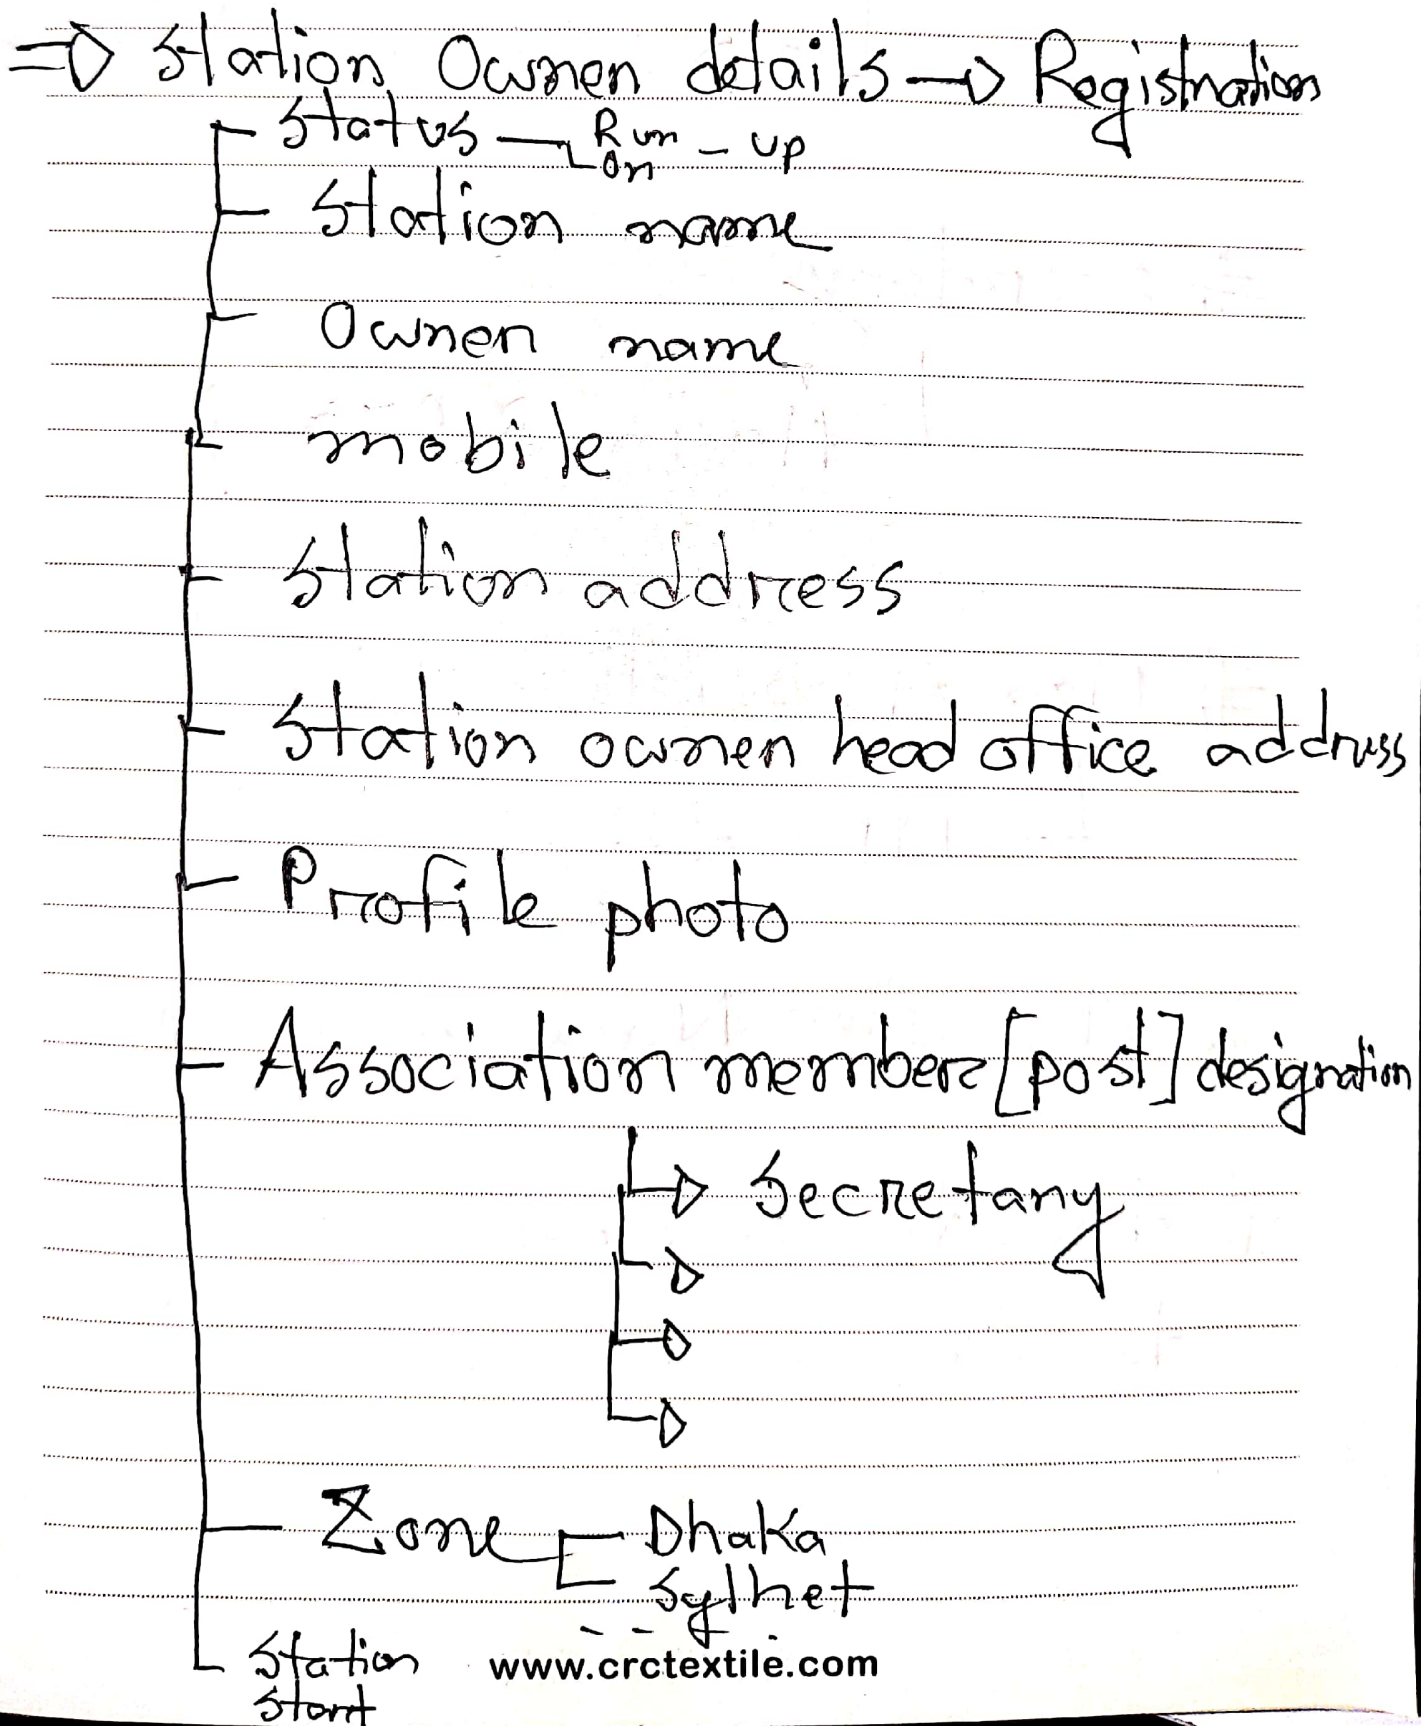 ⇒ Station Owner details → Registration
Status - Run - up
On
Station name
Owner name
mobile
Station address
Station owner head office address
Profile photo
Association member [post] designation
→ Secretary
Zone Dhaka
Sylhet
Station
Start
www.crctextile.com